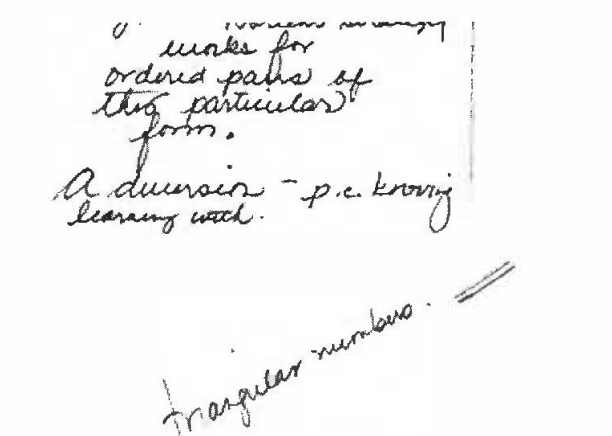 works for
ordered pairs of
this particular
form.
A diversion - p.c.
learning with.
triangular numbers.